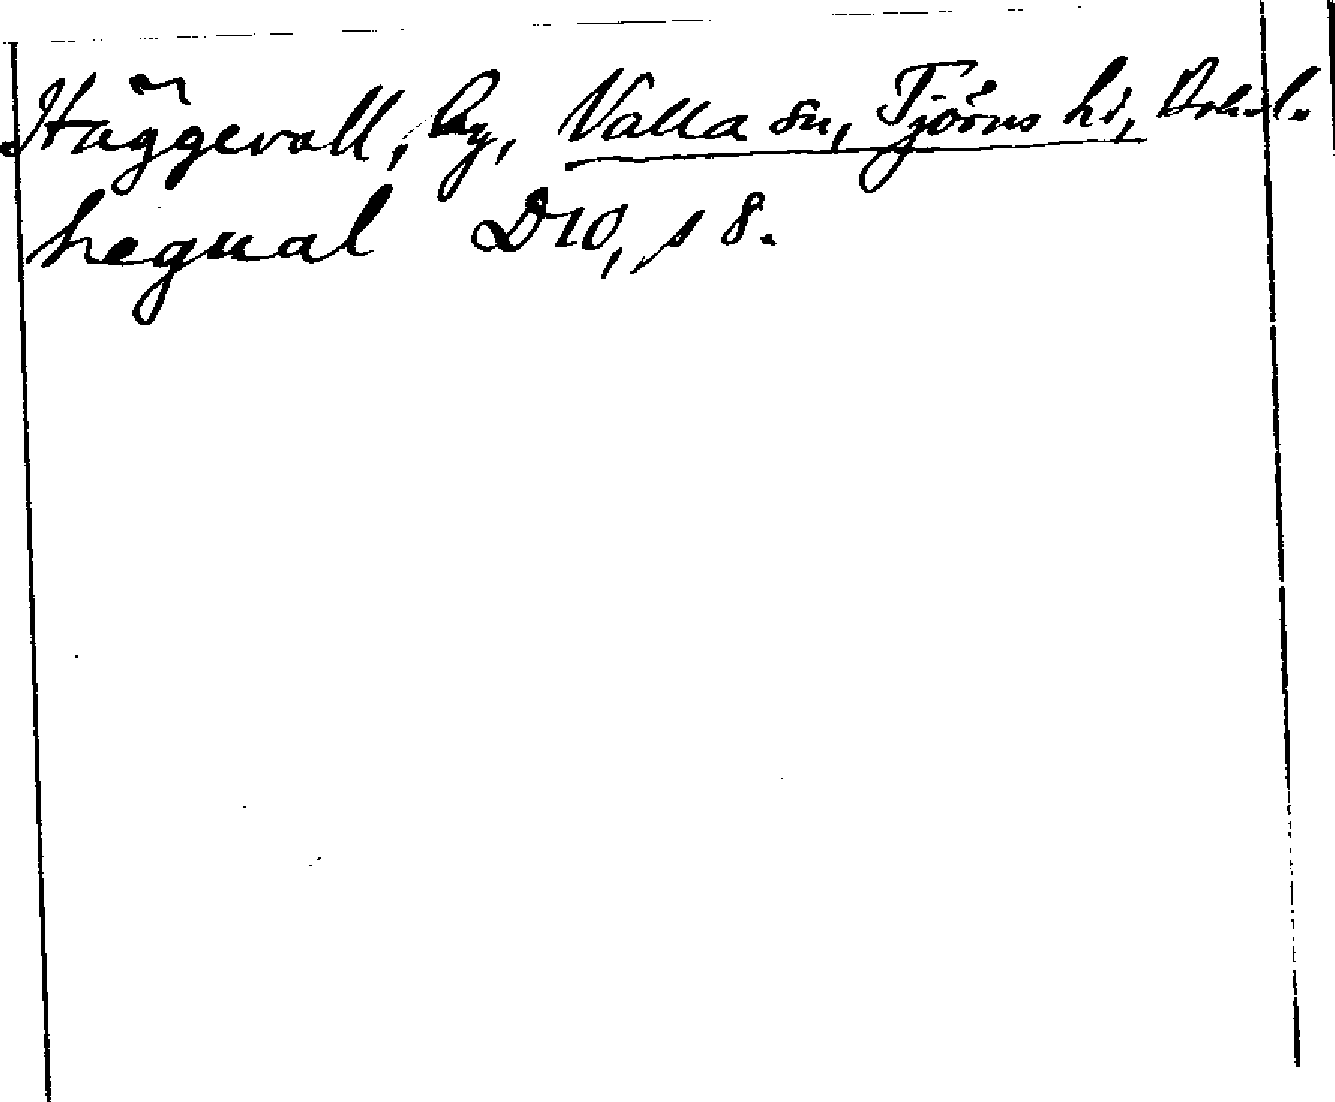 Häggevall, by, Valla sn, Tjörns hd, Boh. l.
hegnal D10, s 8.